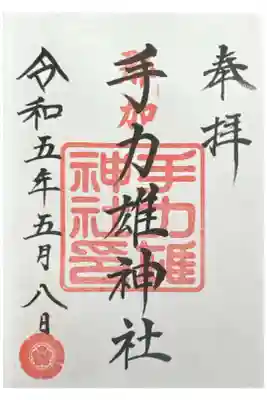 奉拝
手力雄神社
令和五年五月八日
手力雄
神社印